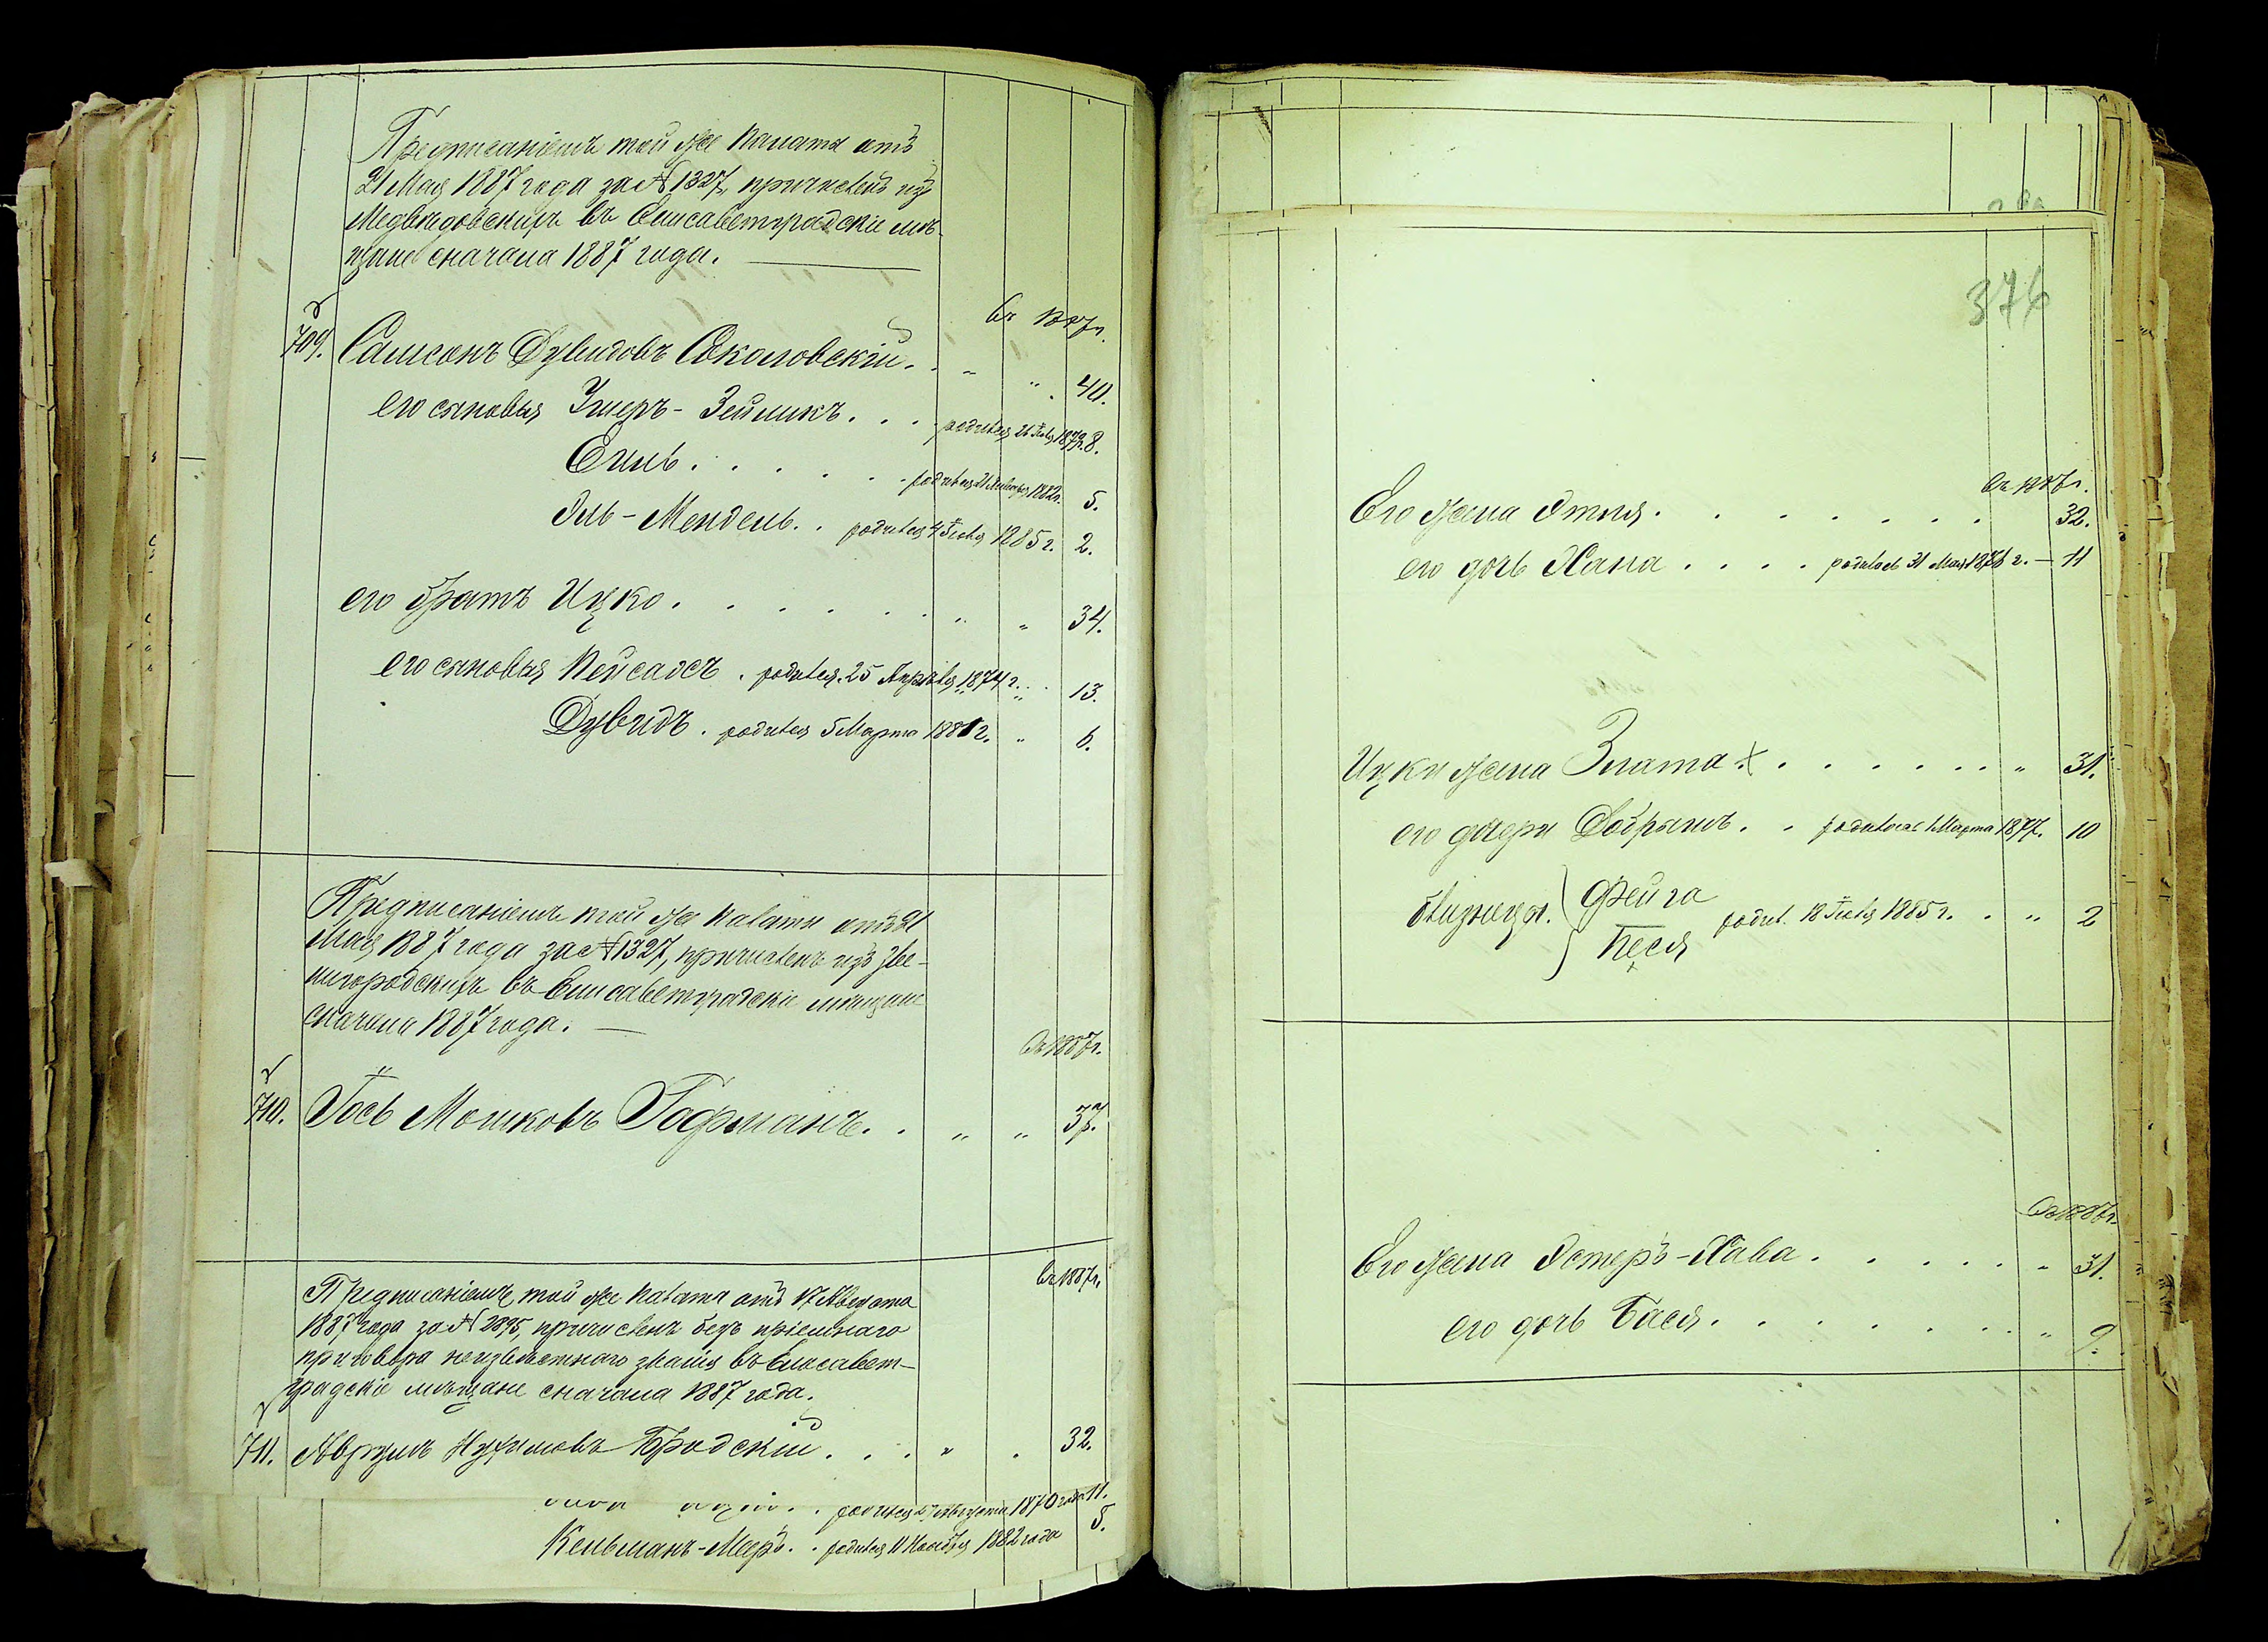 Предписаніемъ той же Палаты отъ
21 Мая 1887 года за № 1327, причисленъ изъ
Медвѣдовскихъ въ Елисаветградскіе мѣ-
щане сначала 1887 года.
въ 1887 г.
709. Самсонъ Дувидовъ Соколовскій . . „ „ 40.
его сыновья Ушеръ-Зейликъ . . . родился 26 1879 г. 8.
Елиь . . . . . родился 21 Января 1882 г. 5.
Эль-Мендель . . родился 4 Іюля 1885 г. 2.
его братъ Ицко . . . . . . . „ 34.
его сыновья Пейсахъ . родился 25 Апрѣля 1874 г. „ 13.
Дувидъ . родился 5 Марта 1881 г. „ 6.
Предписаніемъ той же Палаты отъ 21
Мая 1887 года за № 1327, причисленъ изъ Зве-
нигородскихъ въ Елисаветградскіе мѣщане
сначала 1887 года.
въ 1887 г.
710. Іось Мошковъ Гофманъ . . „ „ 37.
въ 1887 г.
Предписаніемъ той же Палаты отъ 17 Августа
1887 года за № 2895, причисленъ безъ пріемнаго
приговора неизвѣстнаго званія въ Елисавет-
градскіе мѣщане сначала 1887 года.
711. Аврумъ Нухимовъ Бродскій . . . „ . 32.
родился Августа 1870 года 11.
Кельманъ-Меръ . . родился 11 Ноября 1882 года 5.
376
въ 1887 г.
Его жена Этля . . . . . . . 32.
его дочь Хана . . . . родилась 31 Мая 1876 г. — 11
Ицки жена Злата . . . . . . . „ 31.
его дщери Добрышъ . . родилась 1 Марта 1877. 10
близнецы. Фейга
родил. 18 Іюля 1885 г. . „ 2
Песя
въ 1887 г.
Его жена Эстеръ-Хава . . . . . „ 31.
его дочь Бася . . . . . . . „ 9.